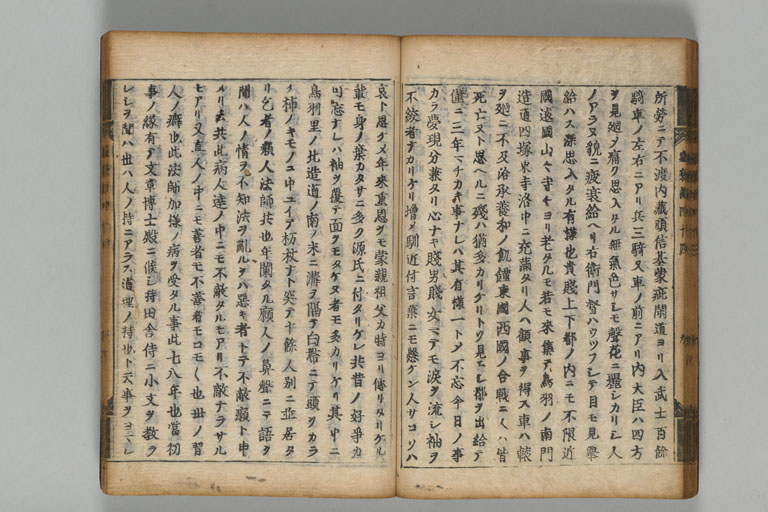 所労ニテ不渡内蔵頭信基蒙疵閑道ヨリ入武士百餘
騎車ノ左右ニアリ兵三騎又車ノ前ニアリ内大臣ハ四方
ヲ見廻ノ痛ク思入タル無氣色サレモ聲花ニ麗シカリシ人
ノアラヌ貌ニ疲衰給ヘリ右衛門督ハウツフシテ目モ見擧
給ハス深思入タル有様也貴賤上下都ノ内ニモ不限近
國遠國山々寺々ヨリ老タルモ若モ來集テ鳥羽ノ南門
造道四塚東寺洛中ニ充滿タリ人ハ顧事ヲ得ス車ハ轅
ヲ廻ニ不及治承養和ノ飢饉東國西國ノ合戰ニ人ハ皆
死亡ヌト思ヘルニ殘ハ猶多カリケリトソ見エシ都ヲ出給テ
僅ニ三年マチカキ事ナレハ其有様一トメ不忘今日ノ事
カラ慶現分兼タリ心ナキ賎男賤女マテモ涙ヲ流シ袖ヲ
不絞者ナカリケリ増メ馴近付言葉ニモ懸ケン人サコソハ
哀ト思ケメ年來重恩ヲモ蒙親祖父カ時ヨリ傳リタリケル
輩モ身ノ棄カタサニ多ク源氏ニ付タリケレ共昔ノ好争カ
可忘ナレハ袖ヲ覆テ面ヲモタケヌ者モ多カリケリ其中ニ
鳥羽里ノ北造道ノ南ノ末ニ溝ヲ隔テ白帶ニテ頭ヲカラ
ケ柿ノキモノニ中ユイテ杖ナト突テ十餘人別ニ並居タ
リ乞者ノ癩人法師共也年闌タル癩人ノ鼻聲ニテ語ヲ
聞ハ人ノ情ヲ不知法ヲ亂ルヲハ惡キ者トテ不敵癩ト申
メリ去共此病人達ノ中ニモ不敵タルモアリ不敵ナラサル
モアリ又直人ノ中ニモ善者モ不善者モコモ〳〵也世ノ習
人ノ癖也此法師加様ノ病ヲ受タル事此七八年也當初
事ノ縁有テ文章博士殿ニ候シ持田舎侍ニ小文ヲ教ラ
レシヲ聞ハ世ハ人ノ持ニアラス道理ノ持也ト云事ヲヨマレ